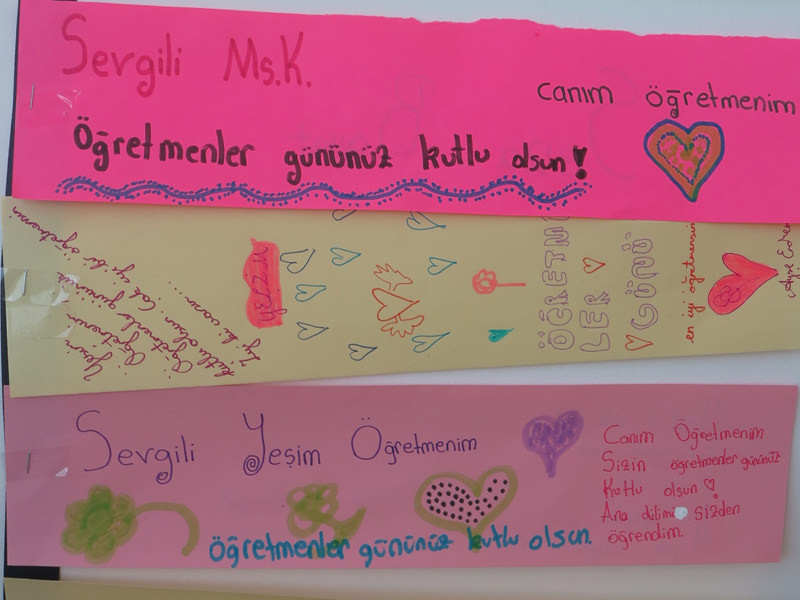 Sevgili Ms.K.
canım öğretmenim
Öğretmenler gününüz kutlu olsun!
Yeşim
Öğretmenim
Öğretmenler gününüz
kutlu olsun. Çok iyi bi öğretmensin
İyi ki varsın...
ÖĞRETMEN
LER
GÜNÜ
en iyi öğretmensin
Sevgili Yeşim Öğretmenim
öğretmenler gününüz kutlu olsun.
Canım Öğretmenim
Sizin öğretmenler gününüz
Kutlu olsun
Ana dilimi sizden
öğrendim.